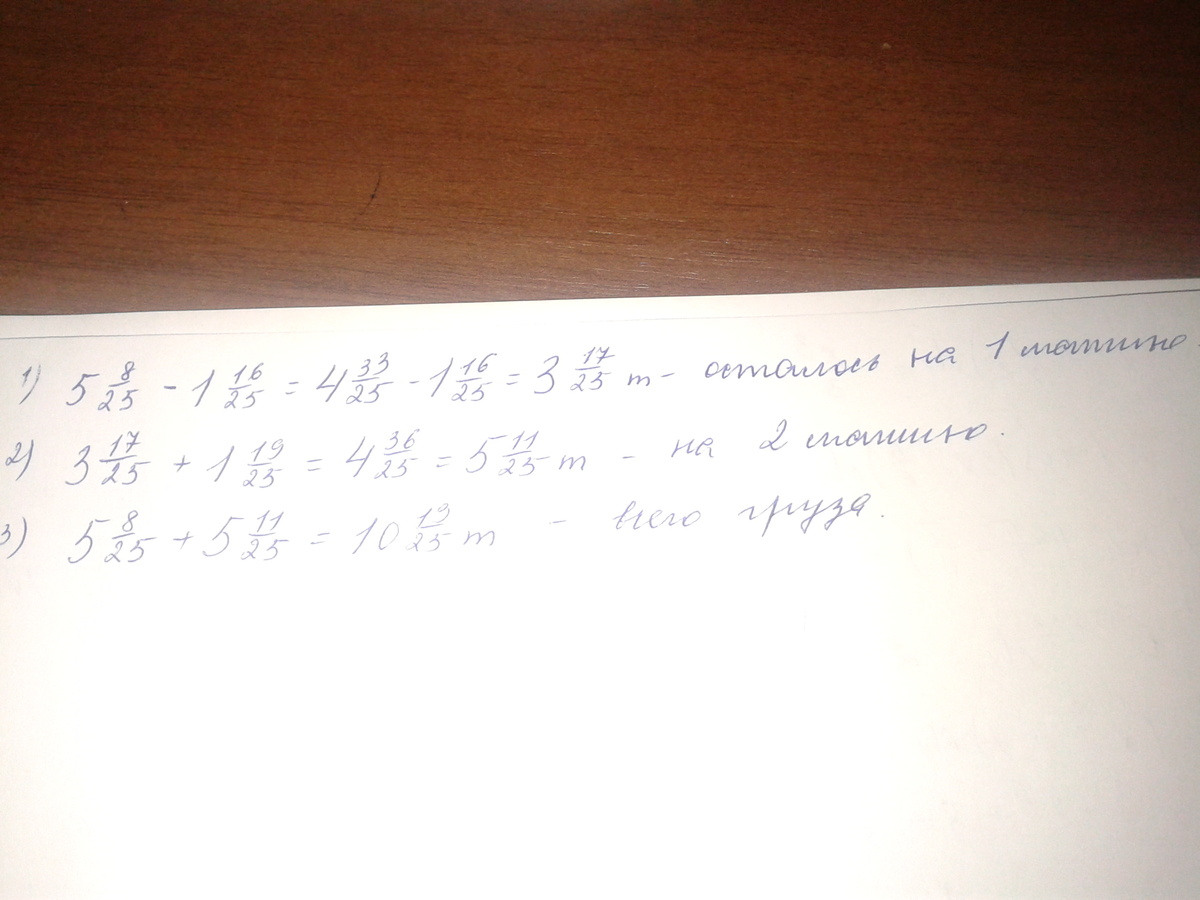 1) 5 8/25 - 1 16/25 = 4 33/25 - 1 16/25 = 3 17/25 т - осталось на 1 машине.
2) 3 17/25 + 1 19/25 = 4 36/25 = 5 11/25 т - на 2 машино.
3) 5 8/25 + 5 11/25 = 10 19/25 т - всего груза.